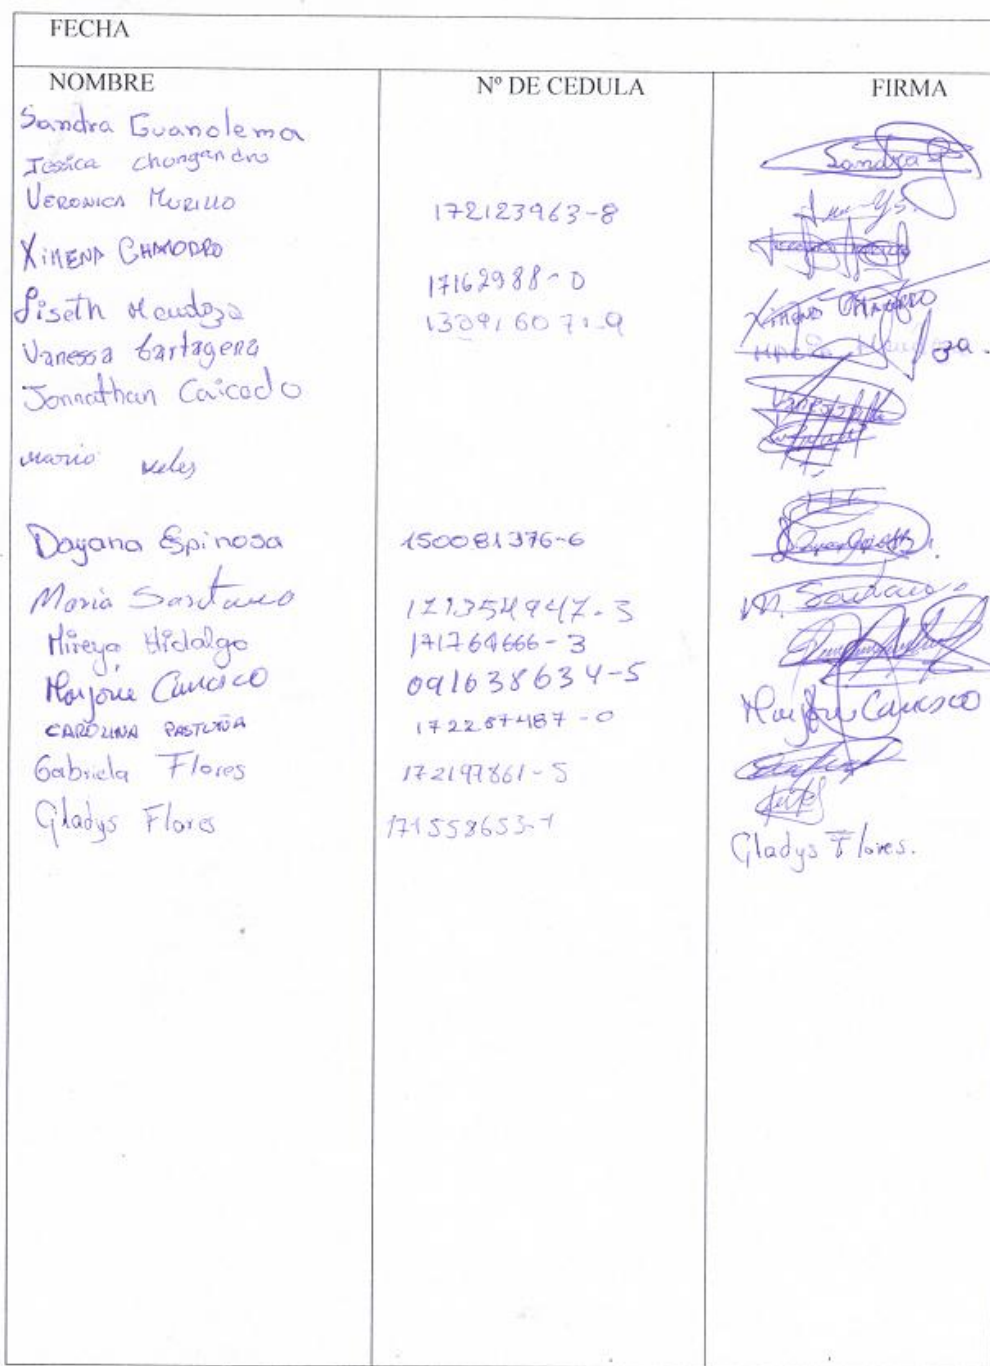 FECHA
NOMBRE Nº DE CEDULA FIRMA
Sandra Guanolema Sandra G
Jessica Chongandro
VERONICA MURILLO 172123963-8
XIMENA CHAMORRO 17162988-0 XIMENA CHAMORRO
Liseth Mendoza 130916071-9
Vanessa Cartagena
Jonnathan Caicedo
Mario Veles
Dayana Espinosa 150081376-6
Maria Santano 171354947-3 M.
Mireya Hidalgo 171764666-3
Marjorie Carrasco 091638634-5 Marjorie Carrasco
CAROLINA PASTUÑA 172287487-0
Gabriela Flores 172197861-5
Gladys Flores 171558653-1 Gladys Flores.